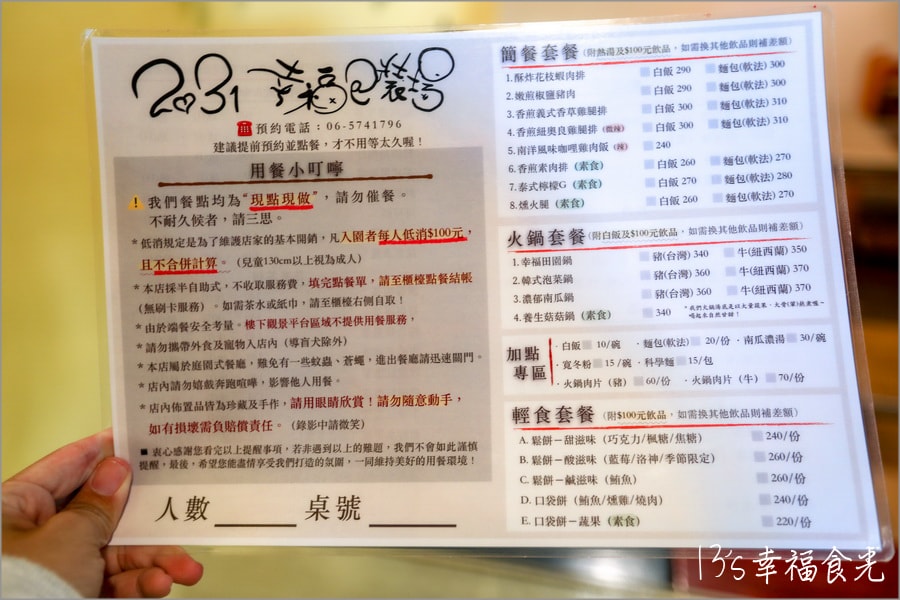 2031 幸福包裝場
預約電話：06-5741796
建議提前預約並點餐，才不用等太久喔！
用餐小叮嚀
我們餐點均為“現點現做”，請勿催餐。
不耐久候者，請三思。
*低消規定是為了維護店家的基本開銷，凡入園者每人低消$100元，
且不合併計算。（兒童130cm以上視為成人）
*本店採半自助式，不收取服務費，填完點餐單，請至櫃檯點餐結帳
（無刷卡服務）。如需茶水或紙巾，請至櫃檯右側自取！
*由於端餐安全考量。樓下觀景平台區域不提供用餐服務，
*請勿攜帶外食及寵物入店內（導盲犬除外）
*本店屬於庭園式餐廳，難免有一些蚊蟲、蒼蠅，進出餐廳請迅速關門。
*店內請勿嬉戲奔跑喧嘩，影響他人用餐。
*店內佈置品皆為珍藏及手作，請用眼睛欣賞！請勿隨意動手，
如有損壞需負賠償責任。（錄影中請微笑）
■ 衷心感謝您看完以上提醒事項，若非遇到以上的難題，我們不會如此謹慎
提醒，最後，希望您能盡情享受我們打造的氛圍，一同維持美好的用餐環境！
人數 桌號
簡餐套餐（附熱湯及$100元飲品，如需換其他飲品則補差額）
1.酥炸花枝蝦肉排 白飯 290 麵包(軟法) 300
2.嫩煎椒鹽豬肉 白飯 290 麵包(軟法) 300
3.香煎義式香草雞腿排 白飯 300 麵包(軟法) 310
4.香煎紐奧良雞腿排（微辣） 白飯 300 麵包(軟法) 310
5.南洋風味咖哩雞肉飯（辣） 240
6.香煎素肉排（素食） 白飯 260 麵包(軟法) 270
7.泰式檸檬G（素食） 白飯 270 麵包(軟法) 280
8.燻火腿（素食） 白飯 260 麵包(軟法) 270
火鍋套餐（附白飯及$100元飲品，如需換其他飲品則補差額）
1.幸福田園鍋 豬(台灣) 340 牛(紐西蘭) 350
2.韓式泡菜鍋 豬(台灣) 360 牛(紐西蘭) 370
3.濃郁南瓜鍋 豬(台灣) 360 牛(紐西蘭) 370
4.養生菇菇鍋（素食） 340 *我們火鍋湯底是以大量蔬果、大骨(葷)熬煮喔～
喝起來自然甘甜！
加點專區
·白飯 10/碗 ·麵包(軟法) 20/份 ·南瓜濃湯 30/碗
·寬冬粉 15/碗 ·科學麵 15/包
·火鍋肉片（豬） 60/份 ·火鍋肉片（牛） 70/份
輕食套餐（附$100元飲品，如需換其他飲品則補差額）
A. 鬆餅－甜滋味（巧克力/楓糖/焦糖） 240/份
B. 鬆餅－酸滋味（藍莓/洛神/季節限定） 260/份
C. 鬆餅－鹹滋味（鮪魚） 260/份
D. 口袋餅（鮪魚/燻雞/燒肉） 240/份
E. 口袋餅－蔬果（素食） 220/份
13's幸福食光